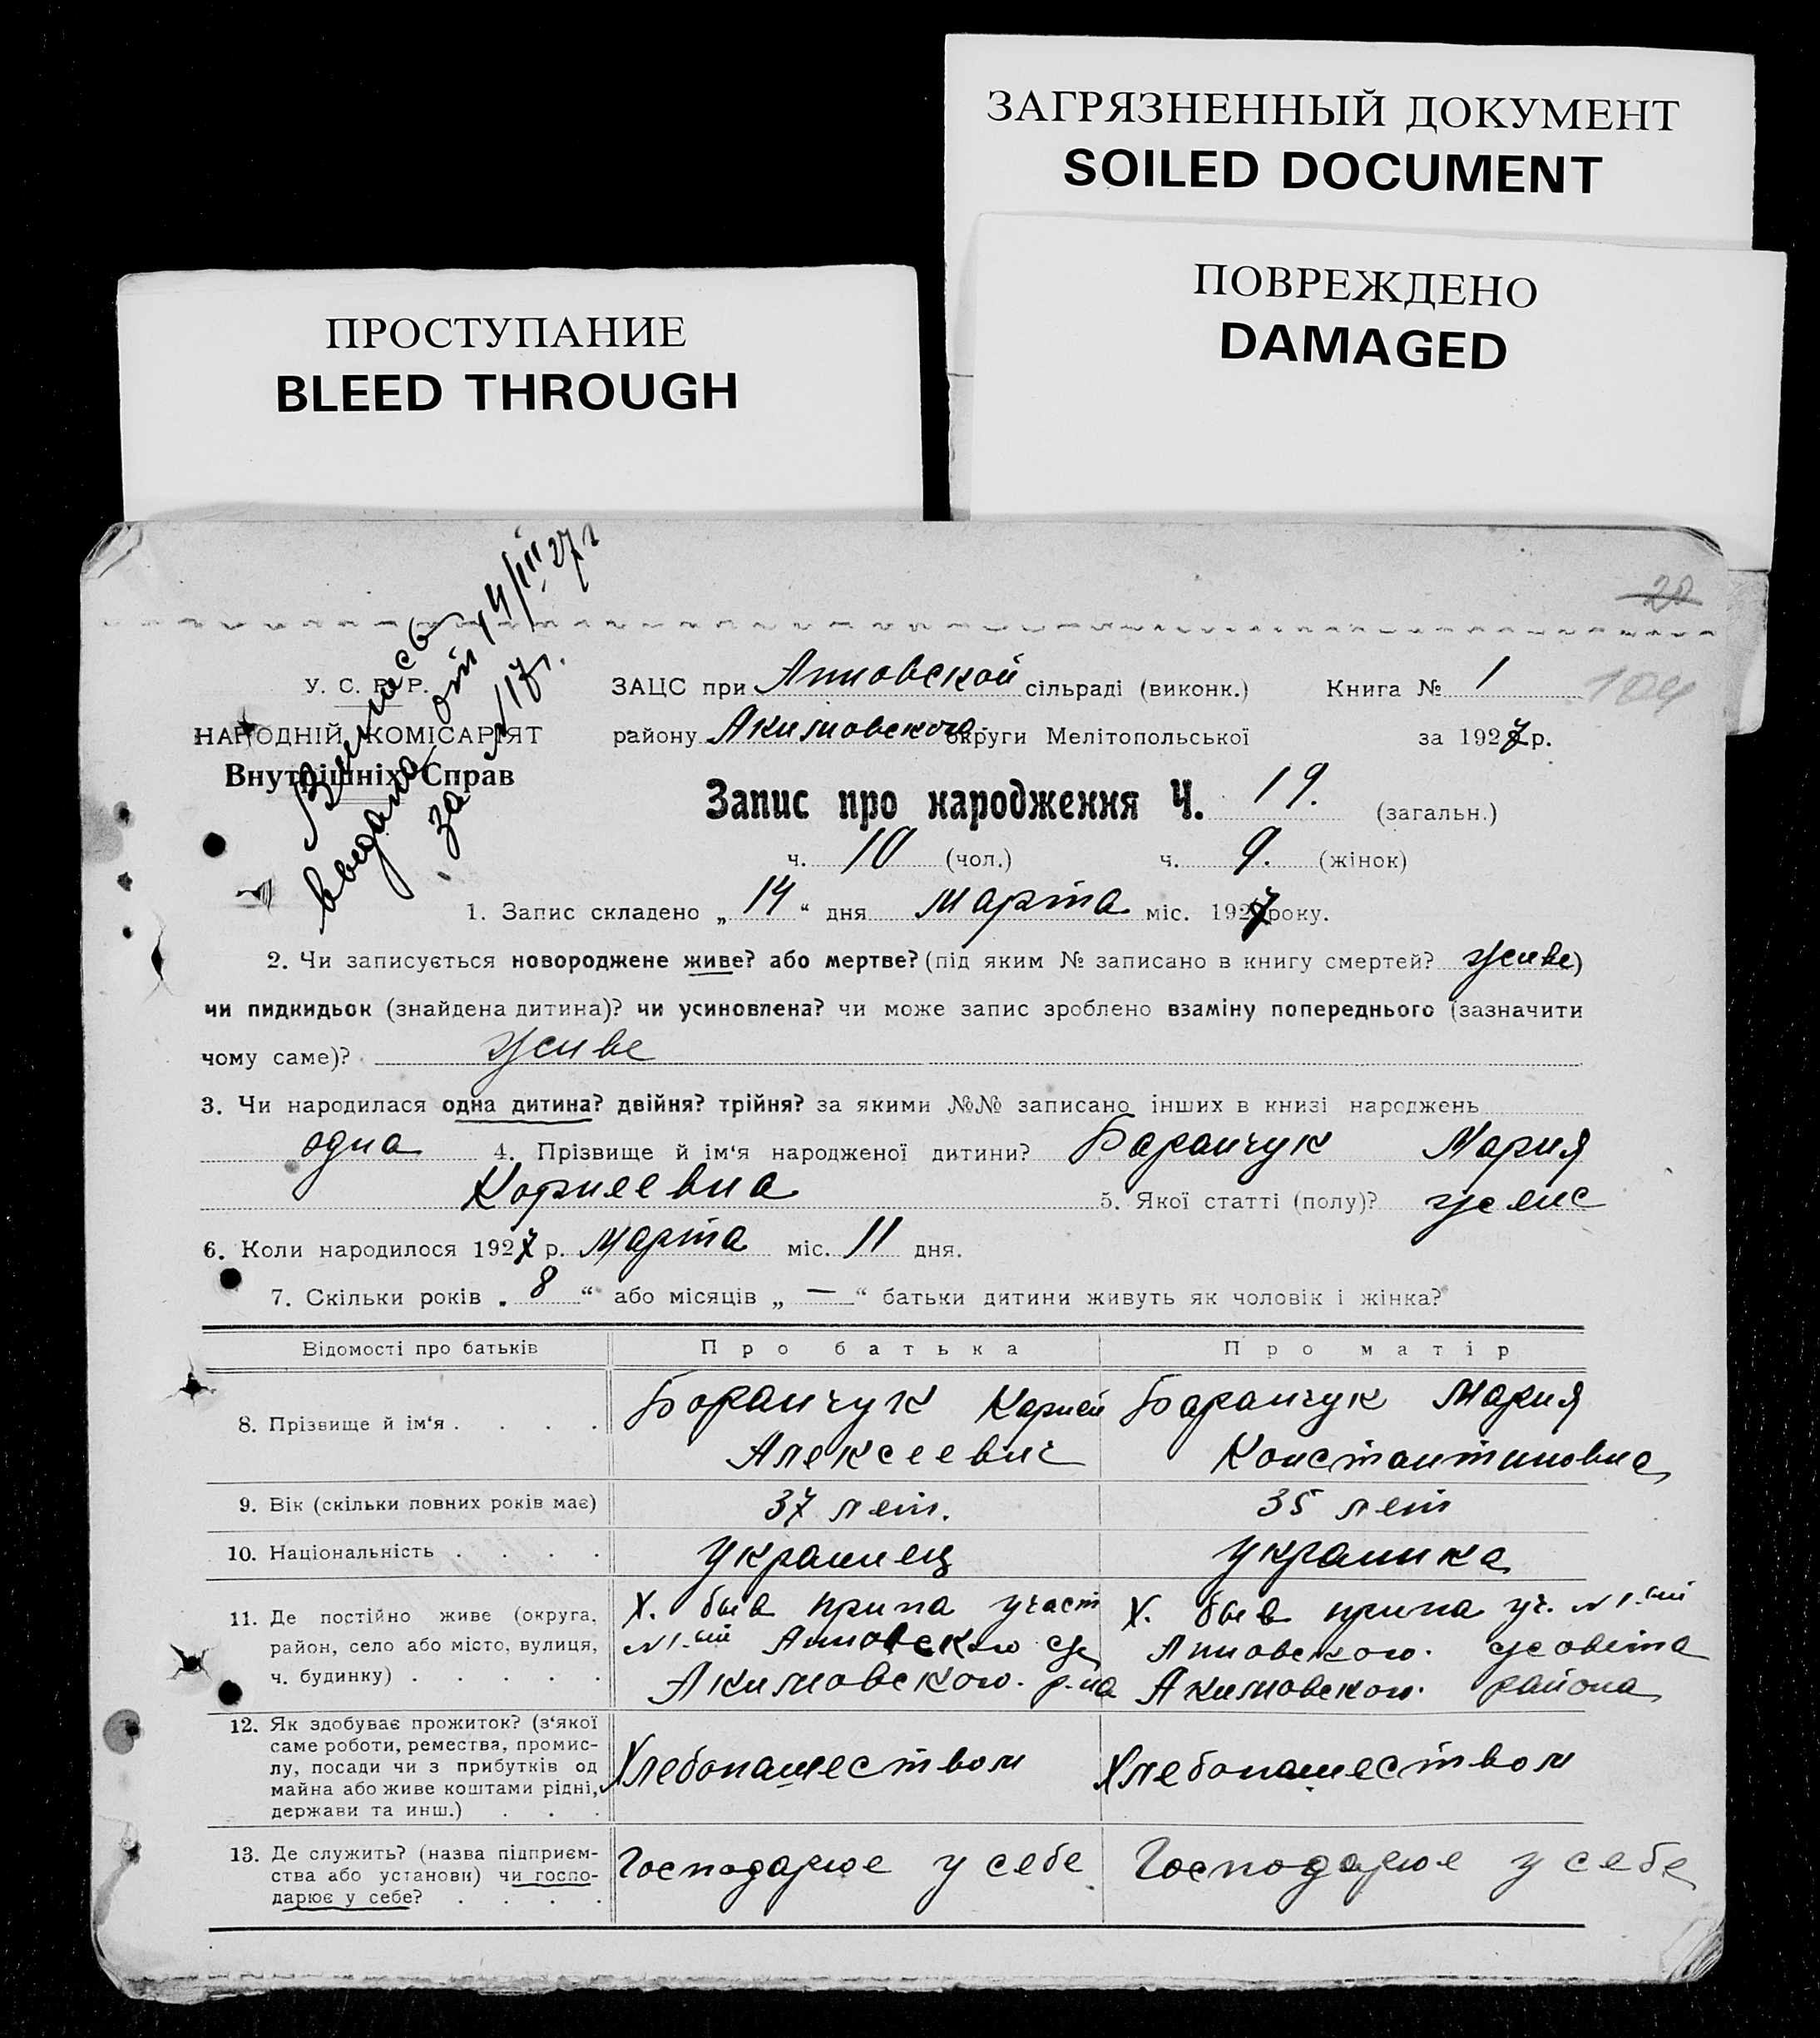 ЗАГРЯЗНЕННЫЙ ДОКУМЕНТ
SOILED DOCUMENT
ПОВРЕЖДЕНО
DAMAGED
ПРОСТУПАНИЕ
BLEED THROUGH
22
104
Выпись
выдана от 14/III 27 г
за № 17 г.
У. С. Р. Р.
НАРОДНІЙ КОМІСАРІЯТ
Внутрішніх Справ
ЗАЦС при Анновской сільраді (виконк.) Книга № 1
району Акимовского округи Мелітопольської за 1927 р.
Запис про народження Ч. 19. (загальн.)
ч. 10 (чол.) ч. 9. (жінок)
1. Запис складено „ 14 “ дня Марта міс. 1927 року.
2. Чи записується новороджене живе? або мертве? (під яким № записано в книгу смертей? живе)
чи пидкидьок (знайдена дитина)? чи усиновлена? чи може запис зроблено взаміну попереднього (зазначити
чому саме)? живе
3. Чи народилася одна дитина? двійня? трійня? за якими №№ записано інших в книзі народжень
одна 4. Прізвище й ім‘я народженої дитини? Баранчук Мария
Корнеевна 5. Якої статті (полу)? женс
6. Коли народилося 1927 р. Марта міс. 11 дня.
7. Скільки років „ 8 “ або місяців „ — “ батьки дитини живуть як чоловік і жінка?
Відомості про батьків Про батька Про матір
8. Прізвище й ім‘я . . . . Боранчук Корней Баранчук Мария
Алексеевич Константиновна
9. Вік (скільки повних років має) 37 лет. 35 лет
10. Національність . . . . украинец украинка
11. Де постійно живе (округа, район, село або місто, вулиця, ч. будинку) . . . . .
Х. быв участ Анновского Акимовского. р-на
Х. быв уч. Анновского. Акимовского. района
12. Як здобуває прожиток? (з‘якої саме роботи, ремества, промислу, посади чи з прибутків од майна або живе коштами рідні, держави та инш.) . . .
Хлебопашеством Хлебопашеством
13. Де служить? (назва підприємства або установи) чи господарює у себе? . . . .
Господарює у себе Господарює у себе